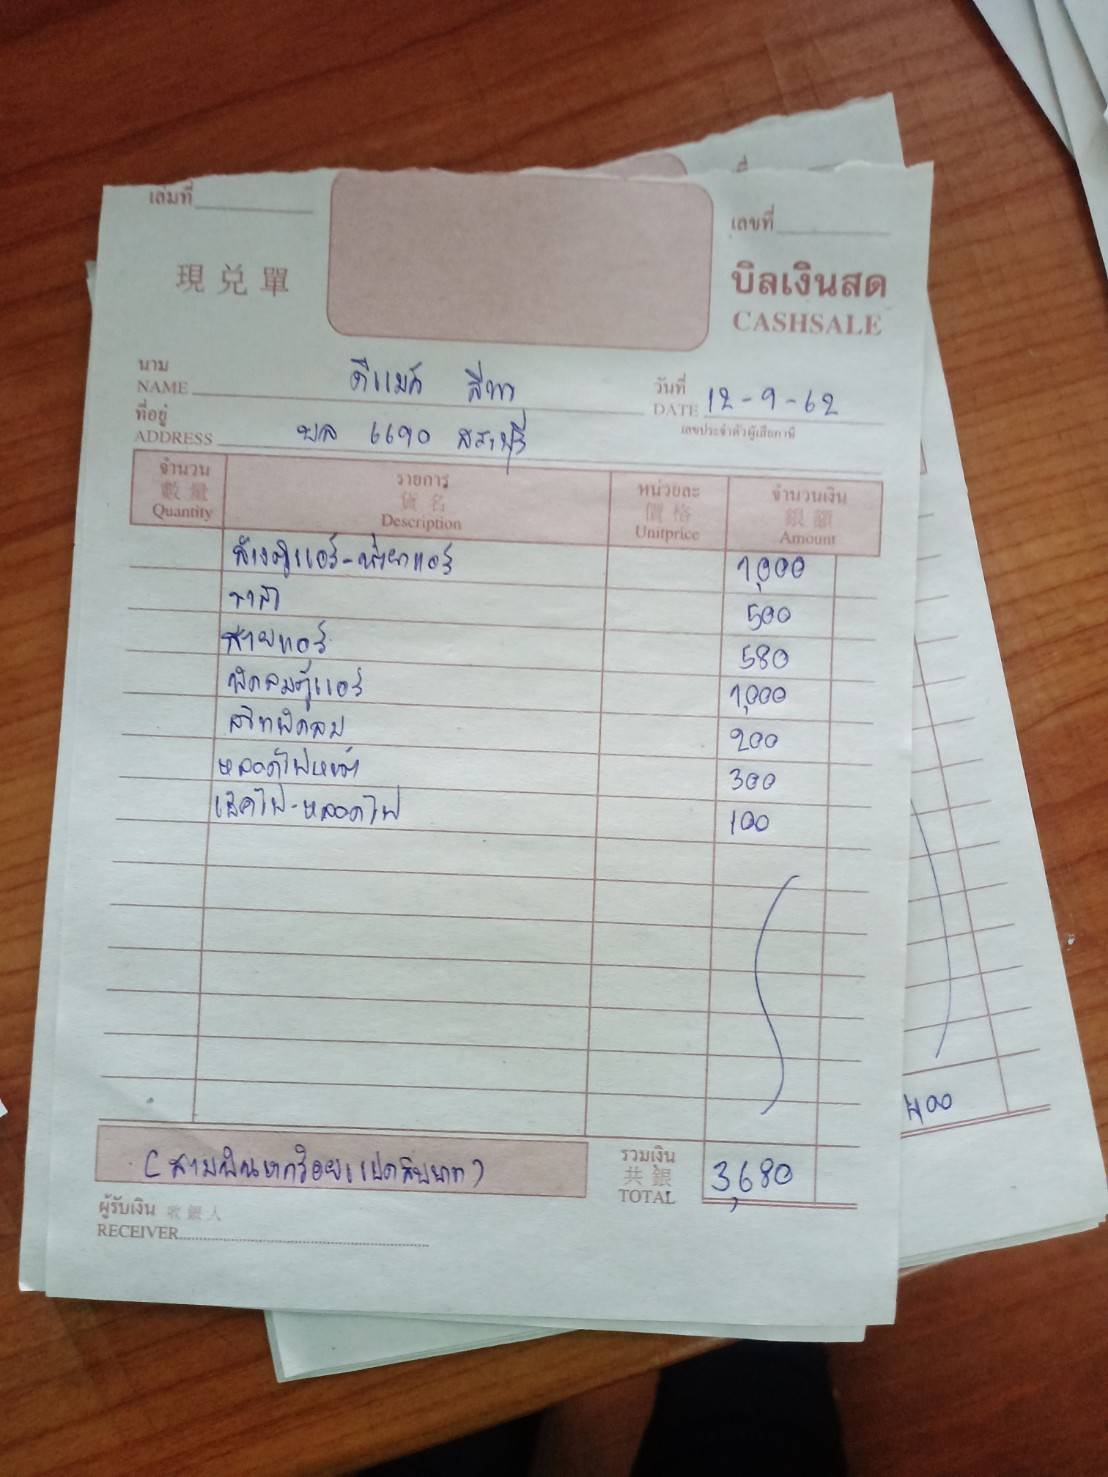 เล่มที่
เลขที่
現兑單
บิลเงินสด
CASHSALE
นาม
NAME ดีแมค สีเทา
วันที่
DATE 12-9-62
ที่อยู่
ADDRESS บล 6690 สระบุรี
เลขประจำตัวผู้เสียภาษี
จำนวน รายการ หน่วยละ จำนวนเงิน
數量 貨名 價格 銀額
Quantity Description Unitprice Amount
ล้างตู้แอร์-น้ำยาแอร์ 1,000
500
สายแอร์ 580
พัดลมตู้แอร์ 1,000
สวิทพัดลม 200
หลอดไฟหน้า 300
เช็คไฟ-หลอดไฟ 100
(สามพันหกร้อยแปดสิบบาท)
รวมเงิน
共銀
TOTAL 3,680
ผู้รับเงิน 收銀人
RECEIVER
400